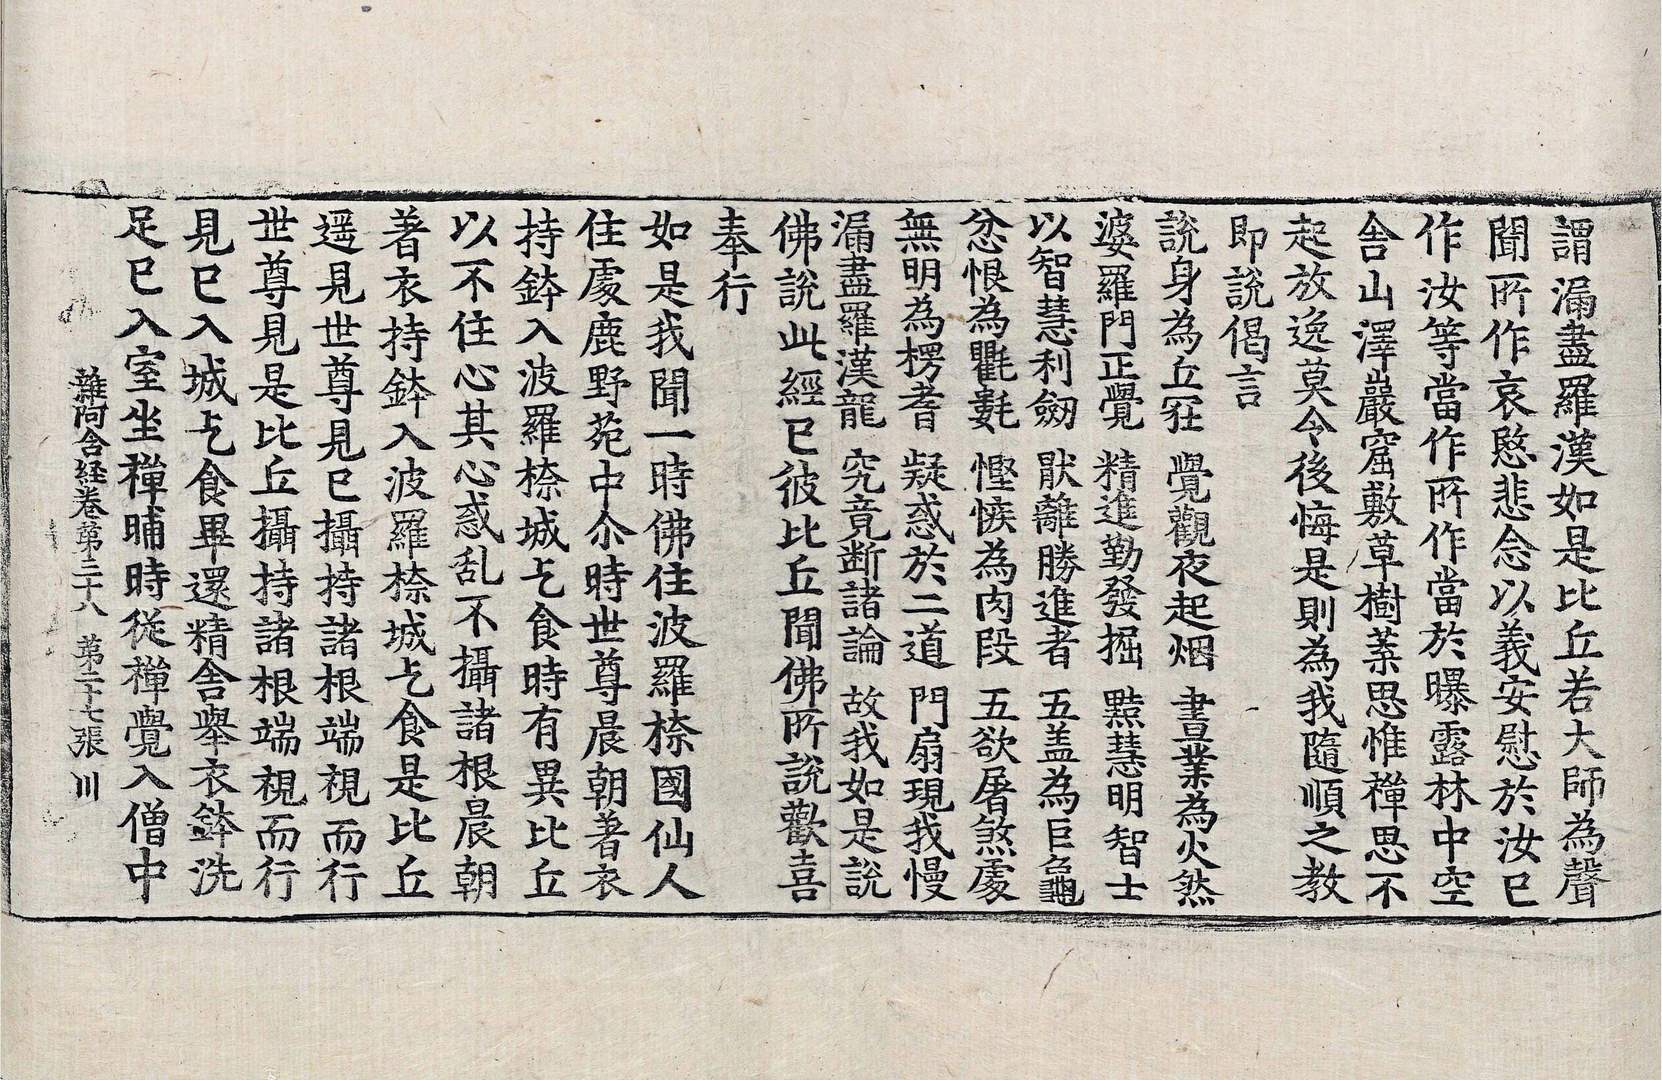 謂漏盡羅漢如是比丘若大師為聲
聞所作哀愍悲念以義安慰於汝已
作汝等當作所作當於曝露林中空
舎山澤巖窟敷草樹葉思惟禪思不
起放逸莫令後悔是則為我隨順之教
即說偈言
說身為丘冢 覺觀夜起烟 晝業為火然
婆羅門正覺 精進勤發掘 黠慧明智士
以智慧利劒 猒離勝進者 五盖為巨龜
忿恨為氍氀 慳悋為肉段 五欲屠煞處
無明為楞耆 疑惑於二道 門扇現我慢
漏盡羅漢龍 究竟断諸論 故我如是說
佛說此經已彼比丘聞佛所說歡喜
奉行
如是我聞一時佛住波羅㮈國仙人
住處鹿野苑中尒時世尊晨朝著衣
持鉢入波羅㮈城乞食時有異比丘
以不住心其心惑乱不攝諸根晨朝
著衣持鉢入波羅㮈城乞食是比丘
遥見世尊見已攝持諸根端視而行
世尊見是比丘攝持諸根端視而行
見已入城乞食畢還精舎舉衣鉢洗
足已入室坐禪晡時從禪覺入僧中
雜阿含経卷第三十八 第二十七張 川